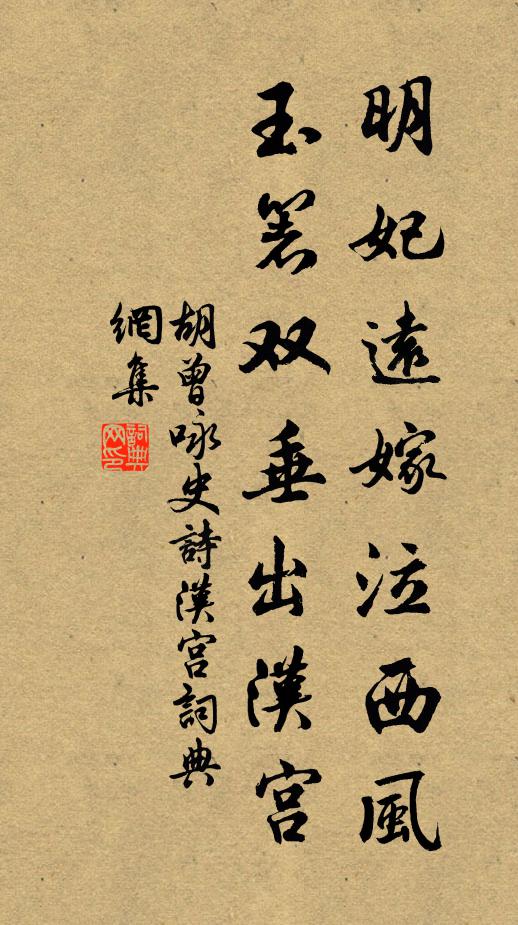 明妃遠嫁泣西風
玉箸双垂出漢宫
胡曾咏史詩漢宫詞典
網集
詞典网印